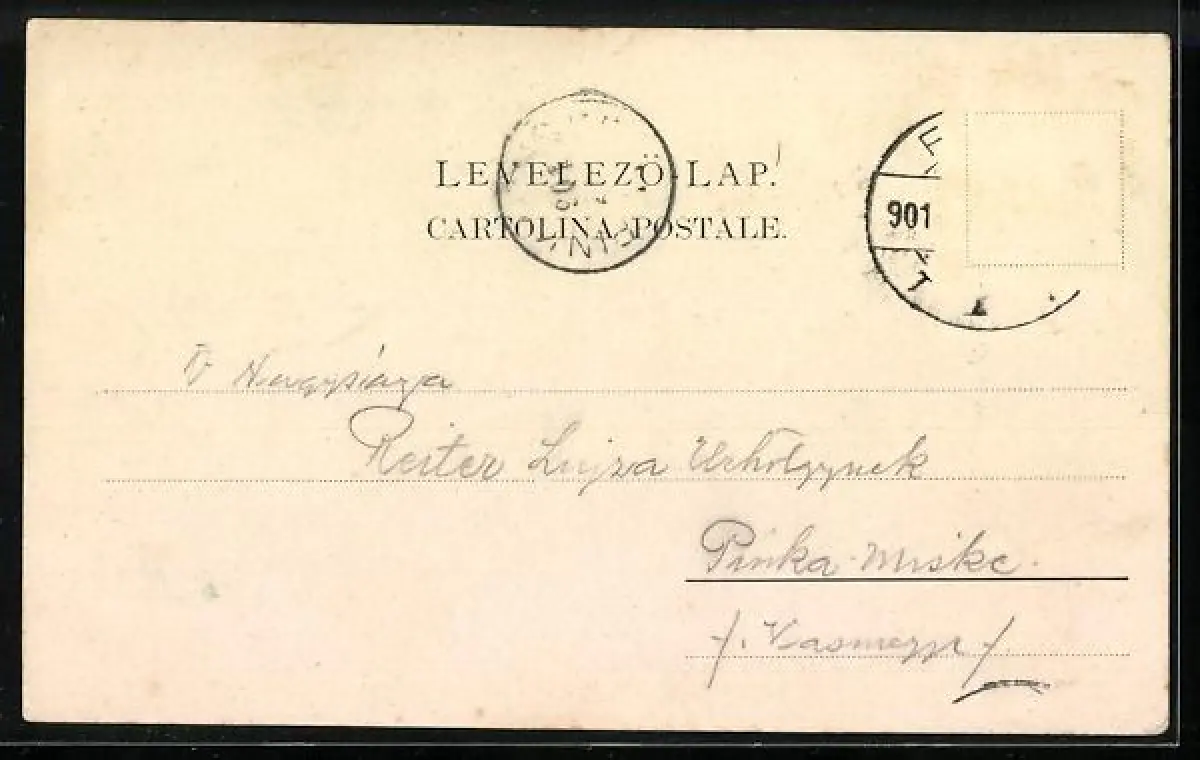 LEVELEZŐ-LAP.
CARTOLINA POSTALE.
901
Ő Nagysága
Reiter Lujza Úrhölgynek
Pinka-Miske.
/. Vasmegye /